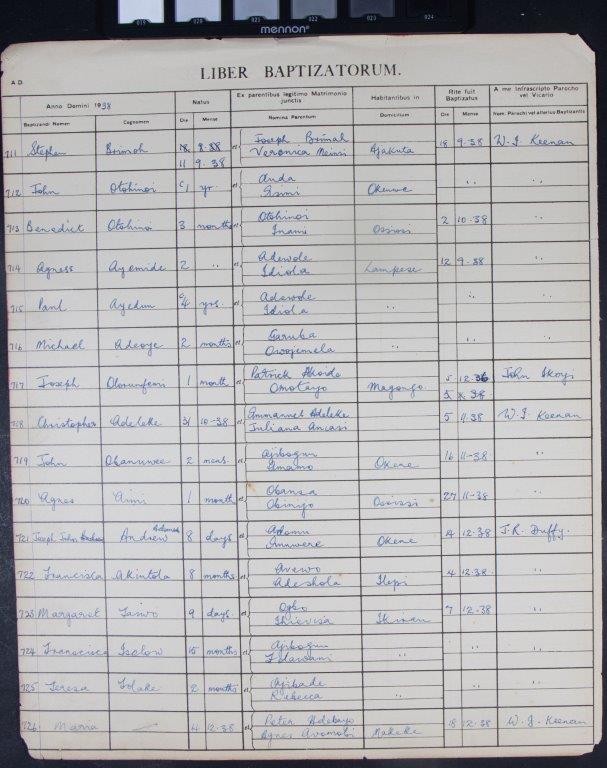 019 020 021 022 023 024
mennon
LIBER BAPTIZATORUM.
A.D.
Anno Domini 1938 Natus Ex parentibus legitimo Matrimonio junctis Habitantibus in Rite fuit Baptizatus A me Infrascripto Parocho vel Vicario
Baptizandi Nomen Cognomen Die Mense Nomina Parentum Domicilium Die Mense Nom. Parochi vel alterius Baptizantis
711 Stephen Brimoh 11 9.38 et Joseph Brimah Veronica Ajakuta 18 9.38 W. J. Keenan
712 John Otohinoi 1 yr et Anda Okenwe " "
713 Benedict Otohinoi 3 months et Otohinoi Inami Ososi 2 10.38 "
714 Agness Ayemide 2 " et Adewole Idiola Lampese 12 9.38 "
715 Paul Ayedun 4 yrs. et Adewole Idiola " " "
716 Michael Adeoye 2 months et Garuba " "
717 Joseph Olorunfemi 1 month et Patrick Omotayo Magongo 5 12.36 John
718 Christopher Adeleke 31 10-38 et Emmanuel Adeleke Juliana 5 11.38 W. J. Keenan
719 John Obanuwee 2 mens. et Ajibogun Imamo Okene 16 11-38 "
720 Agnes Aimi 1 month et Obansa Obingo 27 11-38 "
721 Joseph John Andrew 8 days et Adamu Okene 14 12.38 J. R. Duffy.
722 Francisca Akintola 8 months et Avewo Adeshola Ilepi 4 12.38 "
723 Margaret Taiwo 9 days. et Ogbo 7 12.38 "
724 Franscisca 15 months et Ajibogun " " "
725 Teresa Folake 2 months et Ajibade Rebecca " " "
726 Maria — 4 12.38 et Peter Adebayo Agnes 18 12.38 W. J. Keenan